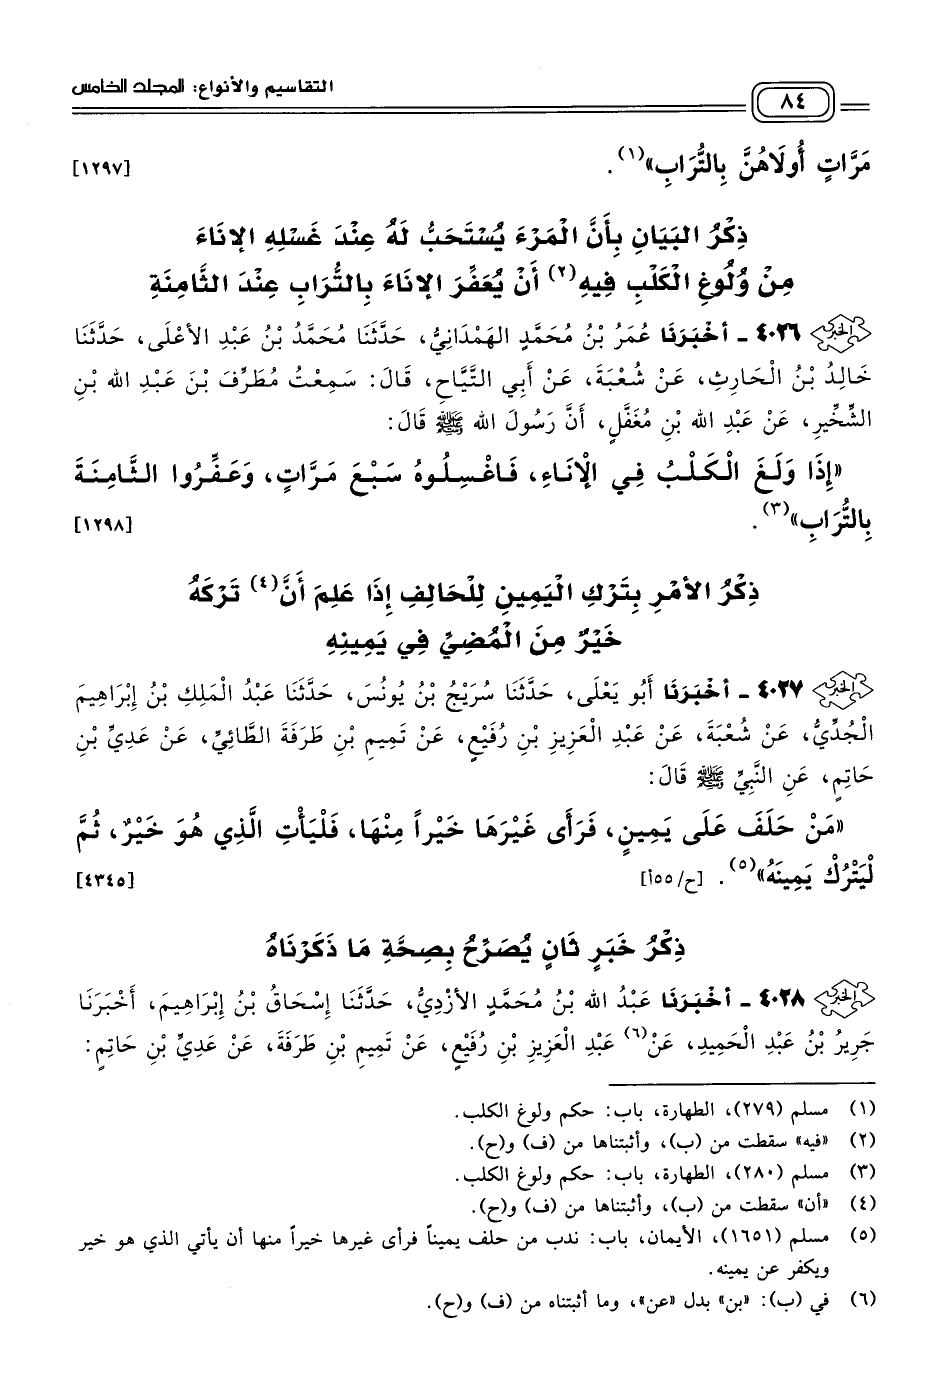 ٨٤
التقاسيم والأنواع: المجلد الخامس
مَرَّاتٍ أُولَاهُنَّ بِالتُّرَابِ»(١). [١٢٩٧]
ذِكْرُ البَيَانِ بِأَنَّ الْمَرْءَ يُسْتَحَبُّ لَهُ عِنْدَ غَسْلِهِ الإنَاءَ
مِنْ وُلُوغِ الْكَلْبِ فِيهِ(٢) أَنْ يُعَفِّرَ الإنَاءَ بِالتُّرَابِ عِنْدَ الثَّامِنَةِ
٤٠٢٦ - أَخْبَرَنَا عُمَرُ بْنُ مُحَمَّدٍ الهَمْدَانِيُّ، حَدَّثَنَا مُحَمَّدُ بْنُ عَبْدِ الأعْلَى، حَدَّثَنَا
خَالِدُ بْنُ الْحَارِثِ، عَنْ شُعْبَةَ، عَنْ أَبِي التَّيَّاحِ، قَالَ: سَمِعْتُ مُطَرِّفَ بْنَ عَبْدِ الله بْنِ
الشِّخِّيرِ، عَنْ عَبْدِ الله بْنِ مُغَفَّلٍ، أَنَّ رَسُولَ الله ﷺ قَالَ:
«إِذَا وَلَغَ الْكَلْبُ فِي الْإنَاءِ، فَاغْسِلُوهُ سَبْعَ مَرَّاتٍ، وَعَفِّرُوا الثَّامِنَةَ
بِالتُّرَابِ»(٣). [١٢٩٨]
ذِكْرُ الأمْرِ بِتَرْكِ الْيَمِينِ لِلْحَالِفِ إِذَا عَلِمَ أَنَّ(٤) تَرْكَهُ
خَيْرٌ مِنَ الْمُضِيِّ فِي يَمِينِهِ
٤٠٢٧ - أَخْبَرَنَا أَبُو يَعْلَى، حَدَّثَنَا سُرَيْجُ بْنُ يُونُسَ، حَدَّثَنَا عَبْدُ الْمَلِكِ بْنُ إِبْرَاهِيمَ
الْجُدِّيُّ، عَنْ شُعْبَةَ، عَنْ عَبْدِ الْعَزِيزِ بْنِ رُفَيْعٍ، عَنْ تَمِيمِ بْنِ طَرَفَةَ الطَّائِيِّ، عَنْ عَدِيِّ بْنِ
حَاتِمٍ، عَنِ النَّبِيِّ ﷺ قَالَ:
«مَنْ حَلَفَ عَلَى يَمِينٍ، فَرَأَى غَيْرَهَا خَيْراً مِنْهَا، فَلْيَأْتِ الَّذِي هُوَ خَيْرٌ، ثُمَّ
لْيَتْرُكْ يَمِينَهُ»(٥). [ح/٥٥أ] [٤٣٤٥]
ذِكْرُ خَبَرٍ ثَانٍ يُصَرِّحُ بِصِحَّةِ مَا ذَكَرْنَاهُ
٤٠٢٨ - أَخْبَرَنَا عَبْدُ الله بْنُ مُحَمَّدٍ الأزْدِيُّ، حَدَّثَنَا إِسْحَاقُ بْنُ إِبْرَاهِيمَ، أَخْبَرَنَا
جَرِيرُ بْنُ عَبْدِ الْحَمِيدِ، عَنْ(٦) عَبْدِ الْعَزِيزِ بْنِ رُفَيْعٍ، عَنْ تَمِيمِ بْنِ طَرَفَةَ، عَنْ عَدِيِّ بْنِ حَاتِمٍ:
(١) مسلم (٢٧٩)، الطهارة، باب: حكم ولوغ الكلب.
(٢) «فيه» سقطت من (ب)، وأثبتناها من (ف) و(ح).
(٣) مسلم (٢٨٠)، الطهارة، باب: حكم ولوغ الكلب.
(٤) «أن» سقطت من (ب)، وأثبتناها من (ف) و(ح).
(٥) مسلم (١٦٥١)، الأيمان، باب: ندب من حلف يميناً فرأى غيرها خيراً منها أن يأتي الذي هو خير
ويكفر عن يمينه.
(٦) في (ب): «بن» بدل «عن»، وما أثبتناه من (ف) و(ح).